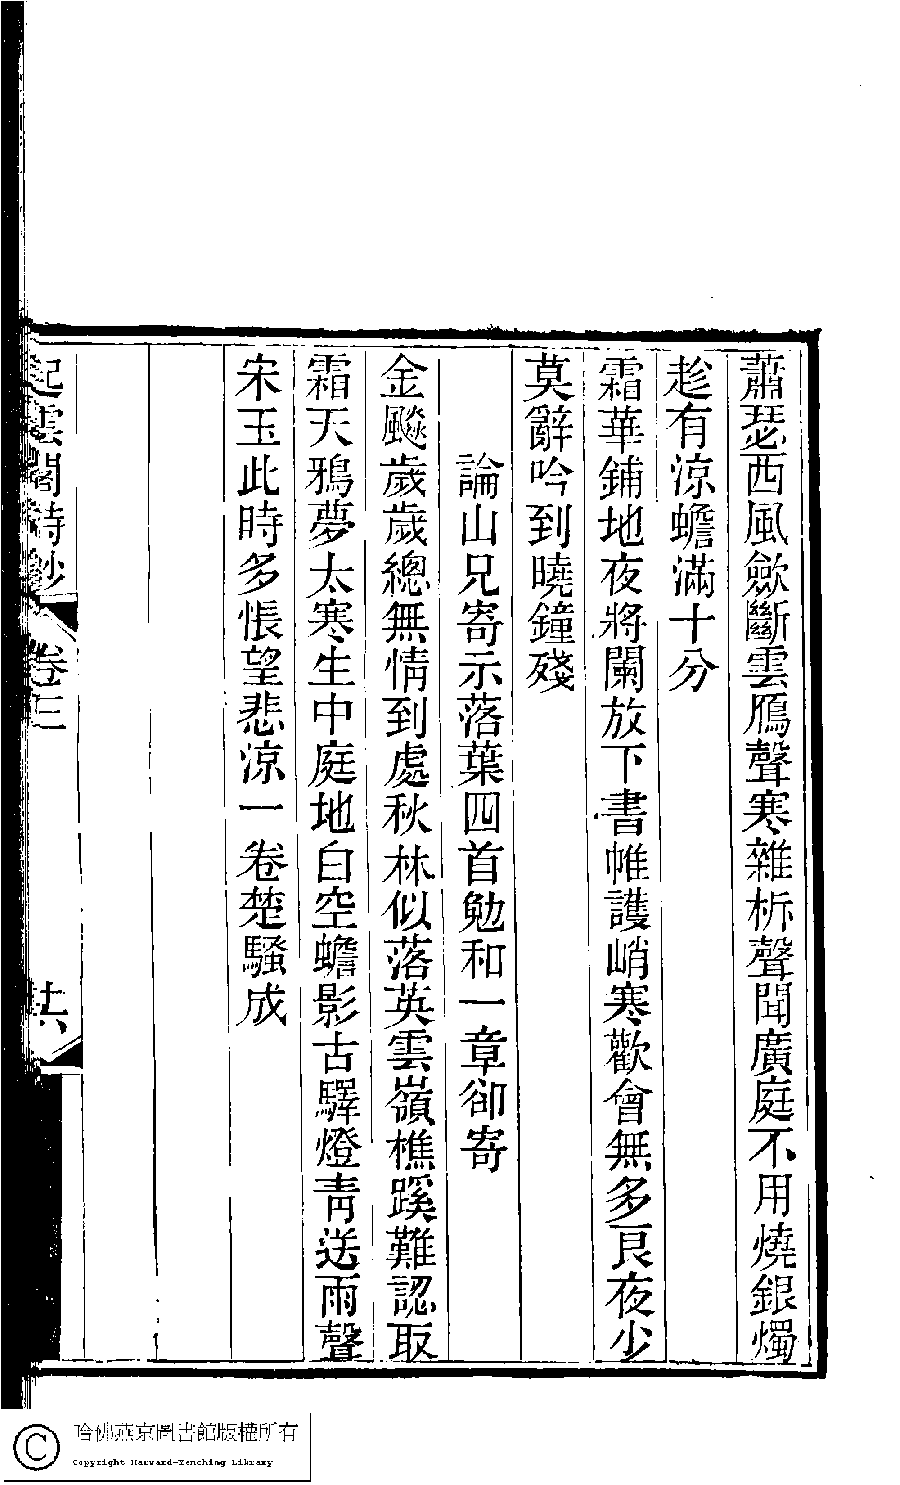 蕭瑟西風歛斷雲鴈聲寒雜柝聲聞廣庭不用燒銀燭
趁有涼蟾滿十分
霜華鋪地夜將闌放下書帷護峭寒歡會無多良夜少
莫辭吟到曉鐘殘
論山兄寄示落葉四首勉和一章卻寄
金颷歲歲總無情到處秋林似落英雲嶺樵蹊難認取
霜天鴉夢太寒生中庭地白空蟾影古驛燈青送雨聲
宋玉此時多悵望悲涼一卷楚騷成
起雲閣詩鈔 卷三 共
哈佛燕京圖書館版權所有
Copyright Harvard-Yenching Library